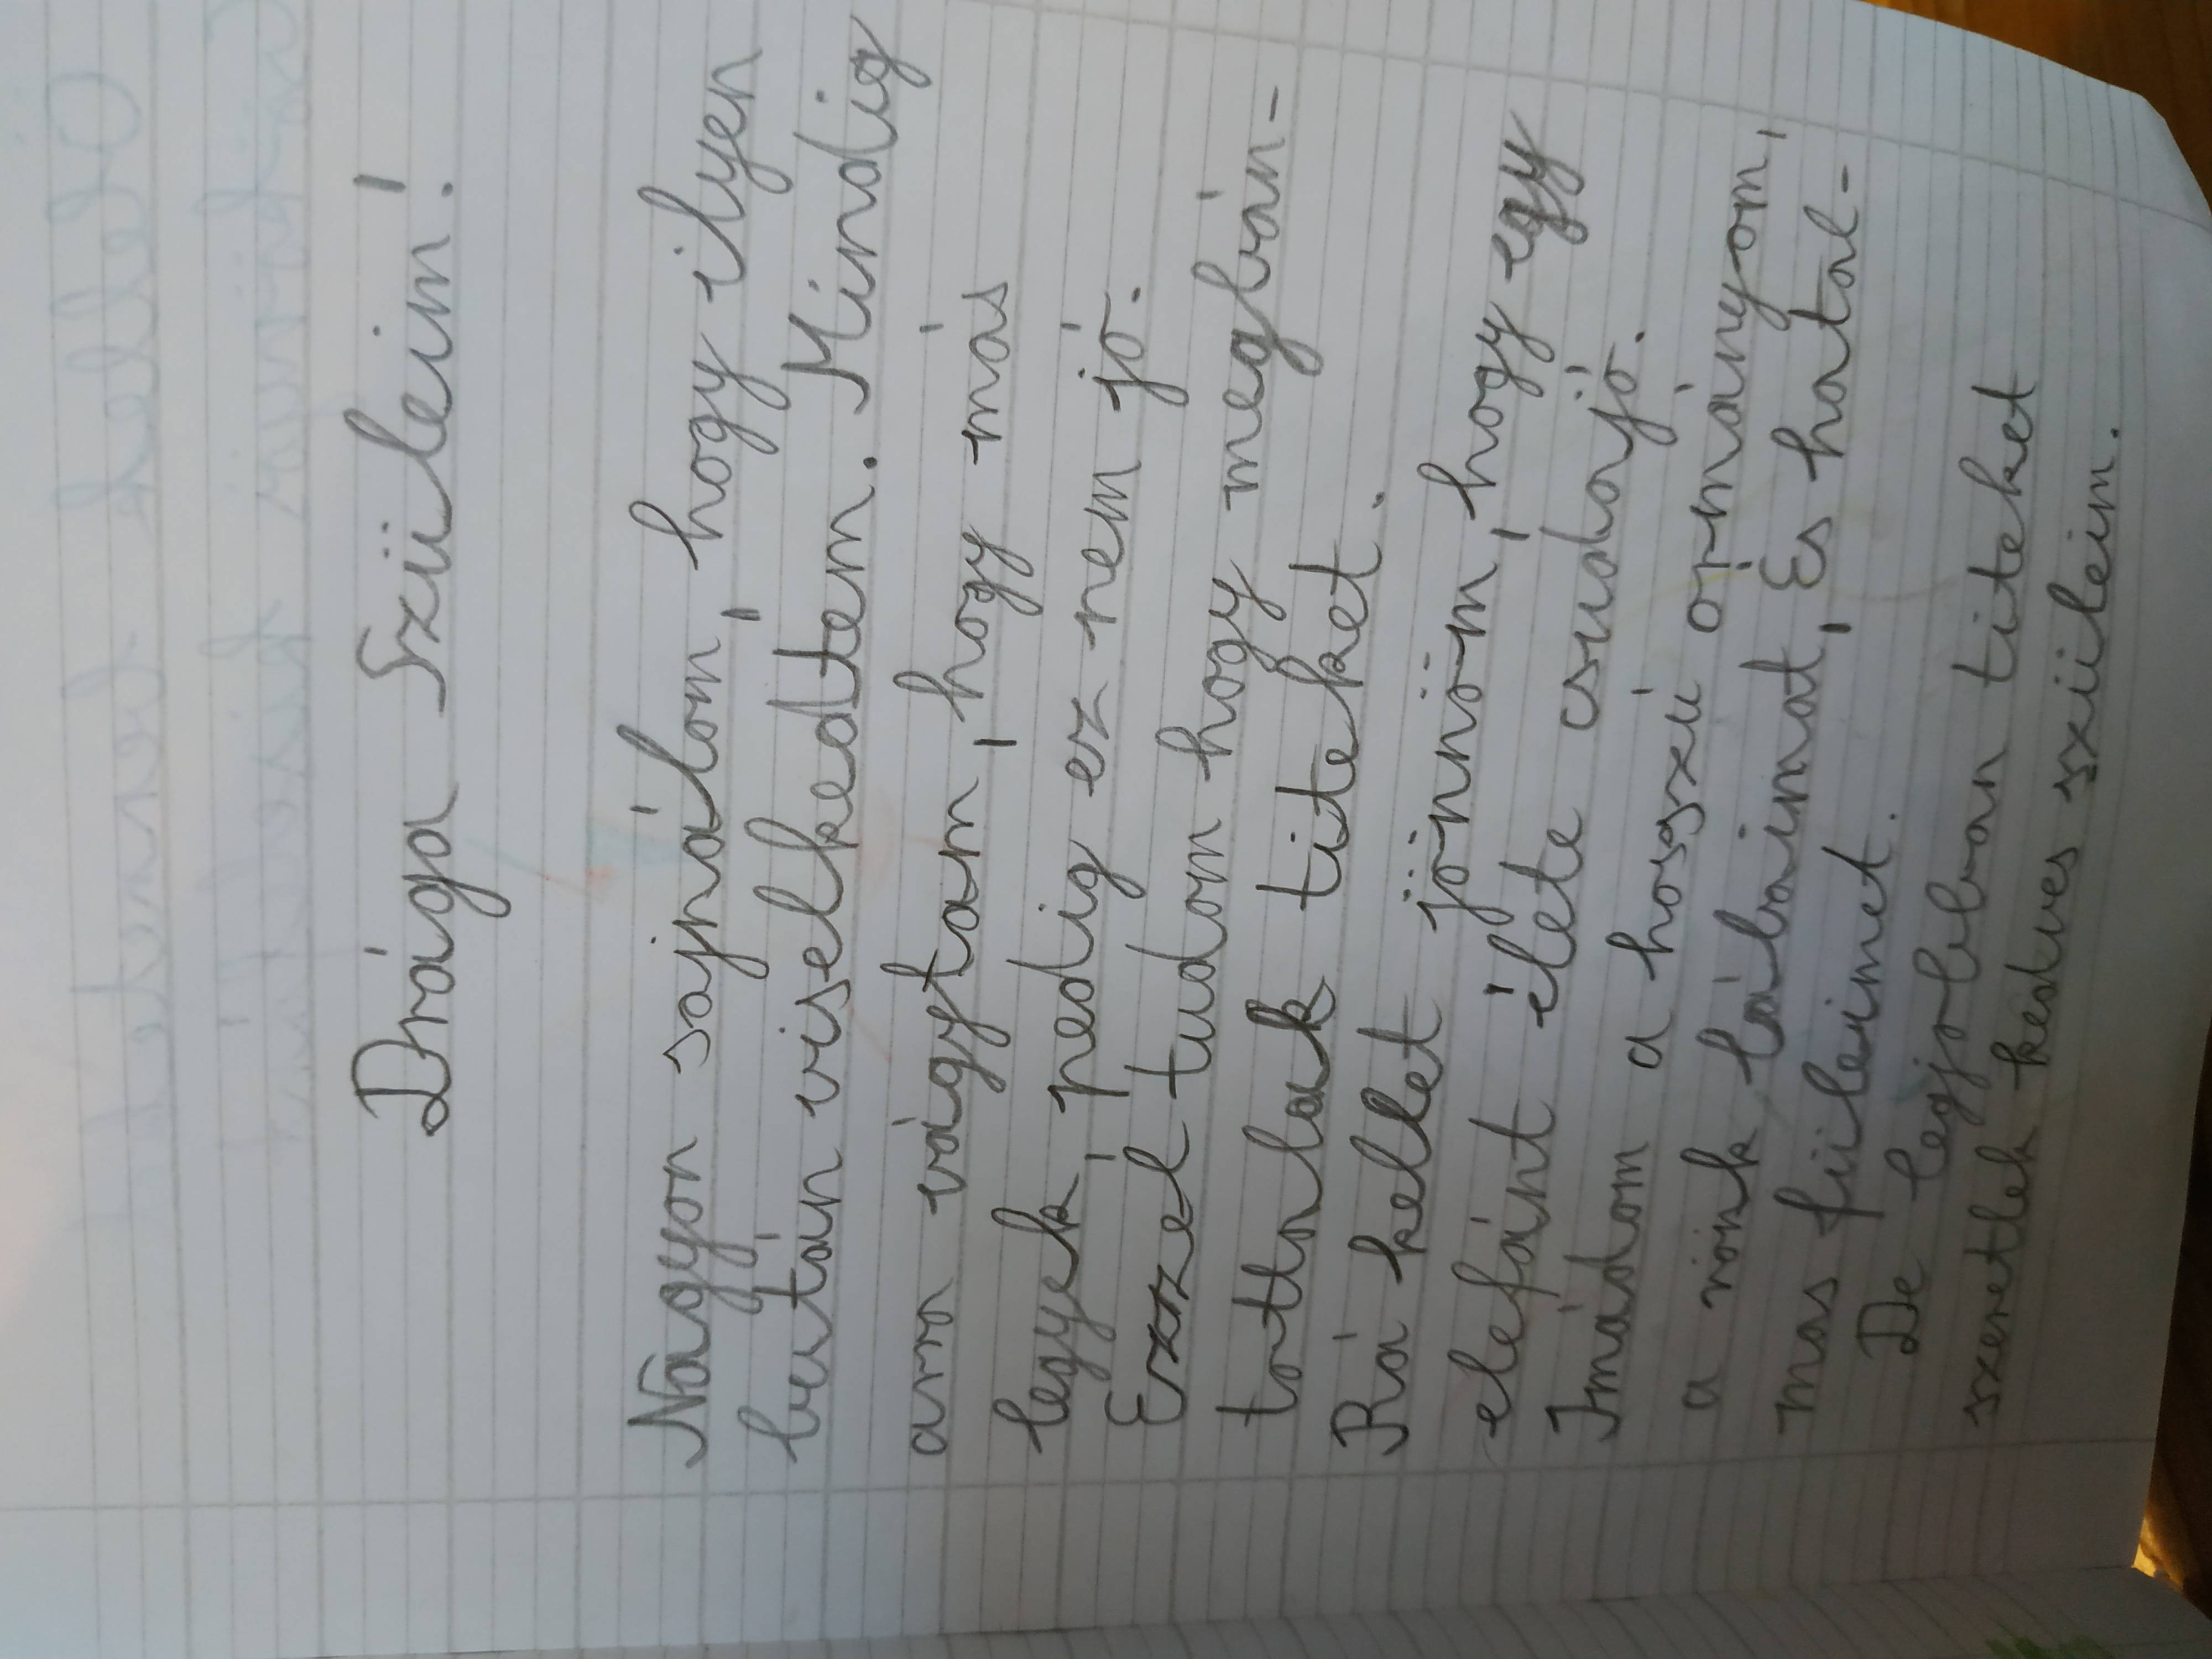 Drága Szüleim!
Nagyon sajnálom, hogy ilyen
bután viselkedtem. Mindig
arra vágytam, hogy más
legyek, pedig ez nem jó.
Ezzel tudom hogy megbán-
tottalak titeket.
Rá kellet jönnöm, hogy egy
elefánt élete csudajó.
Imádom a hosszú ormányom,
a vénk lábaimat, És hatal-
mas füleimet.
De legjobban titeket
szeretlek kedves szüleim.